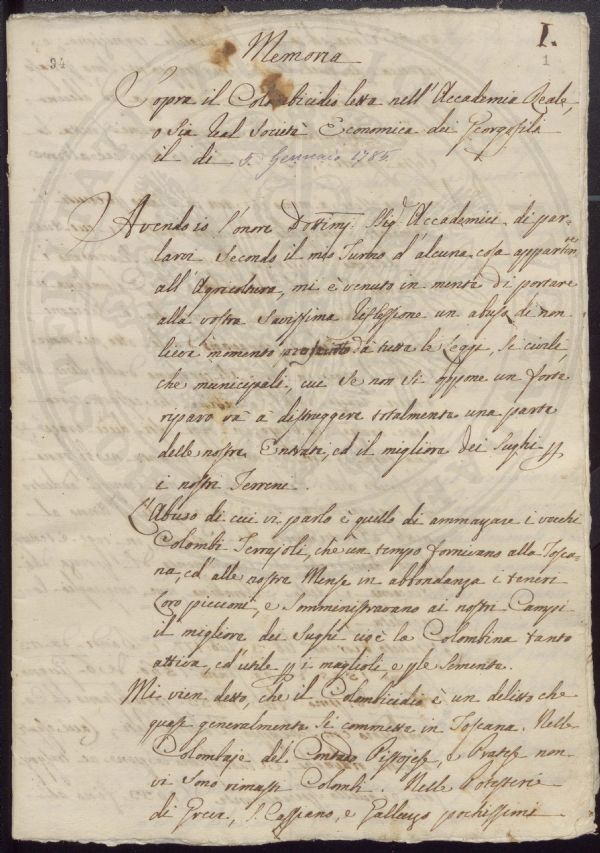 I.
34
1
Memoria
Sopra il Colombicidio letta nell'Accademia Reale,
o sia Real Società Economica dei Georgofili
il di 5. Gennaio 1785
Avendo io l'onore Dottimi Sigri Accademici di par-
larvi secondo il mio Turno d'alcuna cosa appartente
all'Agricoltura, mi è venuto in mente di portare
alla vostra Savissima Riflessione un abuso di non
lieve momento da tutte le Leggi, si civili,
che municipali, cui se non si oppone un forte
riparo và à distruggere totalmente una parte
delle nostre Entrate, ed il migliore dei Sughi p
i nostri Terreni.
L'Abuso di cui vi parlo è quello di ammazzare i vecchi
Colombi Terrajoli, che un tempo fornivano alla Tosca-
na, ed alle nostre Mense in abbondanza i teneri
loro piccioni, e somministravano ai nostri Campi
il migliore dei Sughi cioè la Colombina tanto
attiva, ed utile p i maglioli, e p le sementa.
Mi vien detto, che il Colombicidio è un delitto che
quasi generalmente si commette in Toscana. Nelle
Colombaje del Contado Pistojese, e Pratese non
vi sono rimasti Colombi. Nelle Potesterie
di Greve, S. Cassiano, e Galluzzo pochissimi